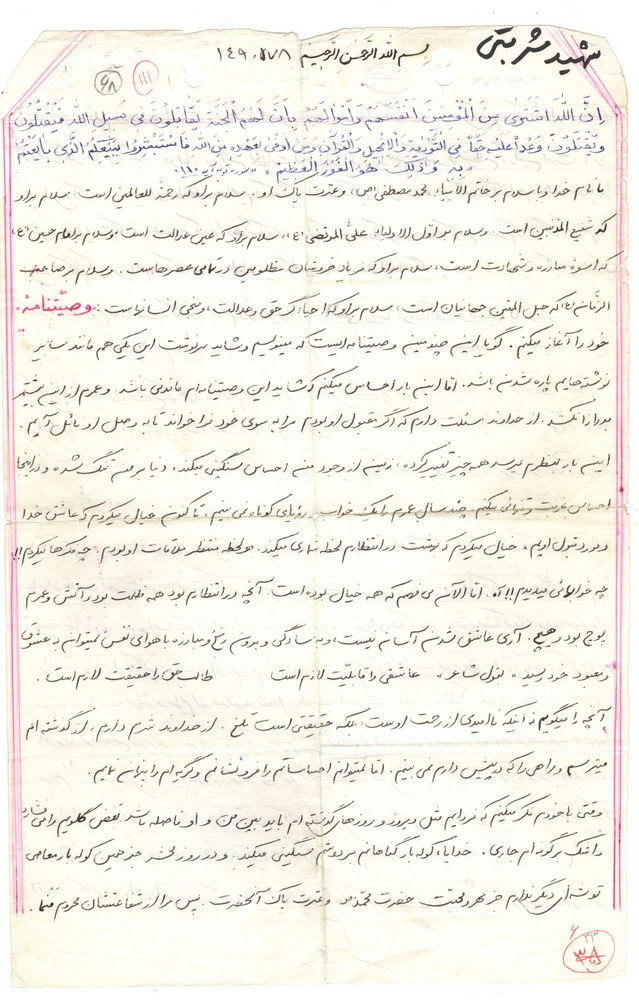 شهید شربتی
بسم الله الرّحمن الرّحیم ۱۴۹۰۵۷۸
۶۸ ۱۱۱
اِنَّ اللهَ اشْتَری مِنَ الْمُؤمِنینَ اَنْفُسَهُمْ وَ اَمْوالَهُمْ بِاَنَّ لَهُمُ الْجَنَّةَ یُقاتِلُونَ فی سَبیلِ اللهِ فَیَقْتُلُونَ
وَ یُقْتَلُونَ وَعْداً عَلَیْهِ حَقّاً فِی التَّوْریةِ وَ الْاِنْجیلِ وَ الْقُرْآنِ وَ مَنْ اَوْفی بِعَهْدِهِ مِنَ اللهِ فَاسْتَبْشِرُوا بِبَیْعِکُمُ الَّذی بایَعْتُمْ
بِهِ وَ ذلِکَ هُوَ الْفَوْزُ الْعَظیمُ
با نام خدا و با سلام بر خاتم الانبیاء محمد مصطفی (ص) و عترت پاک او. سلام بر او که رحمة للعالمین است، سلام بر او
که شفیع المذنبین است. و سلام بر اوّل الاولیاء علیّ المرتضی (ع)، سلام بر او که عین عدالت است، و سلام بر امام حسین (ع)
که اسوهٔ مبارزه و شهادت است، سلام بر او که فریاد خروشان مظلومین در تمامی عصرهاست. و سلام بر صاحب
الزّمان (ع) که حبل المتین جهانیان است، سلام بر او که احیاءگر حق و عدالت، و منجی انسانهاست: وصیّتنامهٔ
خود را آغاز میکنم. گویا این چندمین وصیتنامه ایست که مینویسم و شاید سرنوشت این یکی هم مانند سایر
نوشته هایم پاره شدن باشد. امّا این بار احساس میکنم که شاید این وصیتنامه ام ماندنی باشد. و عمرم از این بیشتر
بدرازا نکشد. از خداوند مسئلت دارم که اگر مقبول او بودم مرا به سوی خود فراخواند تا به وصل او نائل آیم.
این بار بنظرم میرسد همه چیز تغییر کرده، زمین از وجود من احساس سنگینی میکند، دنیا بر من تنگ شده و در اینجا
احساس غربت و تنهائی میکنم. چند سال عمرم را یک خواب و رؤیای کوتاه می بینم. تاکنون خیال میکردم که عاشق خدا
و مورد قبول اویم. خیال میکردم که بهشت در انتظارم لحظه شماری میکند. هر لحظه منتظر ملاقات او بودم. چه فکرها میکردم!!!
چه خوابهائی میدیدم!!! آه. امّا الآن می فهمم که همه خیال بوده است. آنچه در انتظارم بود همه ظلمت بود و آتش و عمرم
پوچ بود و هیچ. آری عاشق شدن آسان نیست، و به سادگی و بدون رنج و مبارزه با هوای نفس نمیتوان به معشوق
و معبود خود رسید. بقول شاعر: عاشقی را قابلیّت لازم است طالب حق را حقیقت لازم است.
آنچه را میگویم نه اینکه ناامیدی از رحمت اوست، بلکه حقیقتی است تلخ. از خداوند شرم دارم، از گذشته ام
میترسم و راهی را که در پیش دارم نمی بینم. امّا نمیتوانم احساساتم را فرو نشانم و گریه ام را پنهان نمایم.
وقتی با خودم فکر میکنم که فردایم مثل دیروز و روزهای گذشته ام باید بین من و او فاصله باشد بغض گلویم را می فشارد
و اشک بر گونه ام جاری. خدایا، کوله بار گناهانم بر دوشم سنگینی میکند. و در روز محشر جز همین کوله بار معاصی
توشه ای دیگر ندارم جز مهر و محبّت حضرت محمّد (ص) و عترت پاک آنحضرت. پس مرا از شفاعتشان محروم مَنَما.
۶
۳۳